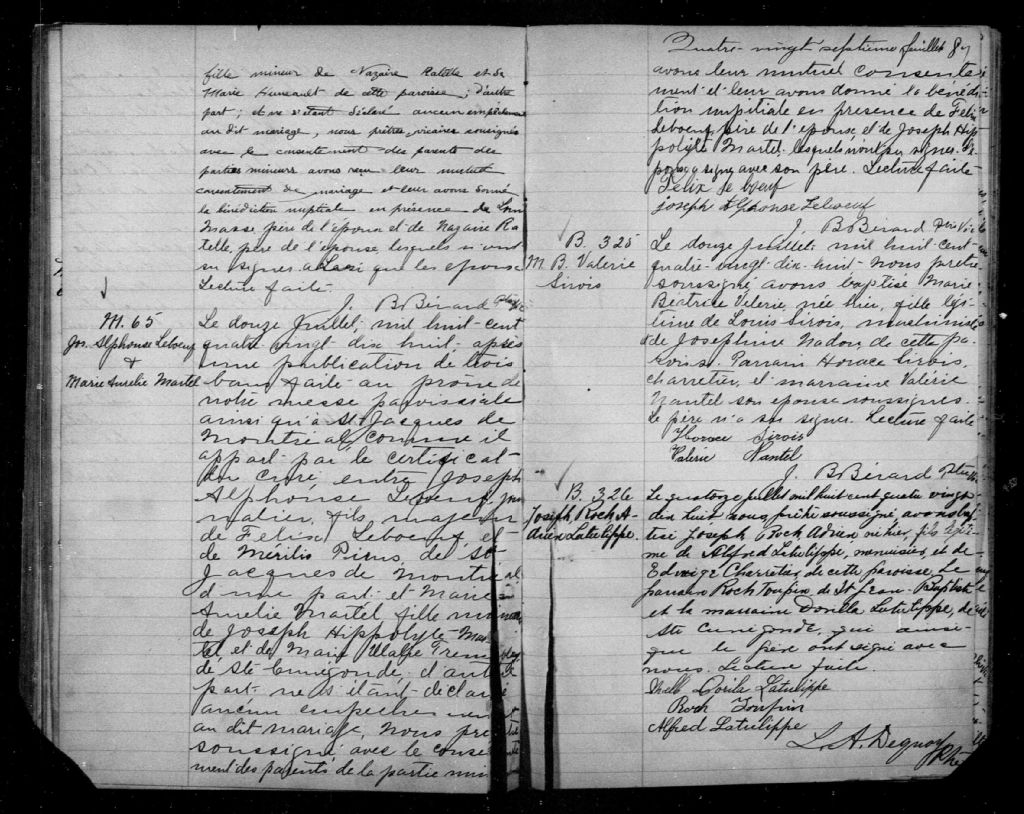 fille mineur de Nazaire Ratelle et de
Marie Huneault de cette paroisse, d'autre
part; et ne s'étant déclaré aucun empêchement
au dit mariage, nous prêtre, vicaire soussignés
avec le consentement des parents des
parties mineurs avons reçu leur mutuel
consentement de mariage et leur avons donné
la bénédiction nuptiale en présence de
Masse père de l'époux et de Nazaire Ra
telle père de l'épouse lesquels n'ont
su signer que les époux
Lecture faite
J. B. Bérard
M. 65
Jos. Alphonse Leboeuf
&
Marie Aurelie Martel
Le douze Juillet, mil huit cent
quatre vingt dix huit, après
une publication de trois
bans faite au prône de
notre messe paroissiale
ainsi qu'à St Jacques de
Montréal comme il
appert par le certificat
du curé, entre Joseph
Alphonse Leboeuf, jour
nalier, fils majeur
de Felix Leboeuf et
de Merilis Pims, de St
Jacques de Montréal
d'une part et Marie
Aurelie Martel fille mineure
de Joseph Hippolyte Mar
tel et de Marie Tremblay
de Ste Cunégonde, d'autre
part ne s'étant déclaré
aucun empêchement
au dit mariage, Nous prêtre
soussigné avec le consente
ment des parents de la partie min
Quatre-vingt septième feuillet 87
avons leur mutuel consente
ment et leur avons donné la bénédic
tion nuptiale en presence de Felix
Leboeuf père de l'epoux et de Joseph Hip
polyte Martel, lesquels n'ont pu signer. L'é
poux a signé avec son père. Lecture faite
Félix le boeuf
joseph Alphonse Leboeuf
J. B. Bérard Ptre Vic
B. 325
M. B. Valerie
Sirois
Le douze Juillet, mil huit cent
quatre-vingt-dix-huit Nous prêtre
soussigné, avons baptisé Marie
Beatrice Valerie, née hier, fille légi
time de Louis Sirois, machiniste
& de Josephine Nadon de cette pa
roisse. Parrain Horace Sirois,
charretier, et marraine Valérie
Nantel son epouse soussignés.
Le père n'a su signer. Lecture faite
Horace Sirois
Valerie Nantel
J. B. Bérard Ptre
B. 326
Joseph, Roch A-
drien Latulippe.
Le quatorze juillet mil huit cent quatre vingt
dix huit nous, prêtre soussigné avons bap
tisé Joseph Roch Adrien né hier, fils légiti
me de Alfred Latulippe, menuisier, et de
Edwige Charretier de cette paroisse. Le
parrain Roch Toupin de St Jean-Baptiste
et la marraine Dorila Latulippe, de
Ste Cunégonde, qui ainsi
que le père ont signé avec
nous. Lecture faite.
Melle Dorila Latulippe
Roch Toupin
Alfred Latulippe
L. A. Deguoy